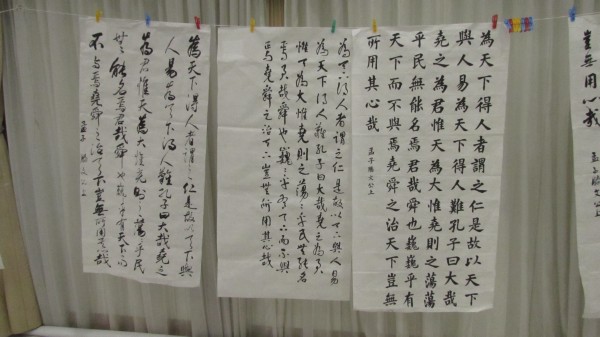 豈無用心哉
孟子滕文公上
為天下得人者謂之仁是故以天下
與人易為天下得人難孔子曰大哉
堯之為君惟天為大惟堯則之蕩蕩
乎民無能名焉君哉舜也巍巍乎有
天下而不與焉堯舜之治天下豈無
所用其心哉
孟子滕文公上
為天下得人者謂之仁是故以天下與人易
為天下得人難孔子曰大哉堯之為君
惟天為大惟堯則之蕩〻乎民無能名
焉君哉舜也巍〻乎有天下而不與
焉堯舜之治天下豈無所用其心哉
為天下得人者謂之仁是故以天下與
人易為天下得人難孔子曰大哉堯之
為君惟天為大惟堯則之蕩〻乎民
無能名焉君哉舜也巍〻乎有天下而
不與焉堯舜之治天下豈無所用其心哉
孟子滕文公上